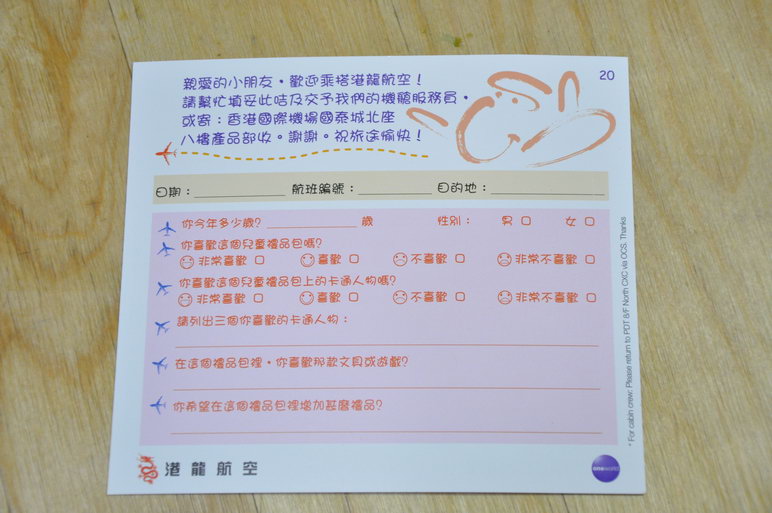 親愛的小朋友，歡迎乘搭港龍航空！
20
請幫忙填妥此咭及交予我們的機艙服務員，
或寄：香港國際機場國泰城北座
八樓產品部收。謝謝。祝旅途愉快！
日期： 航班編號： 目的地：
你今年多少歲? 歲 性別： 男 女
你喜歡這個兒童禮品包嗎?
非常喜歡 喜歡 不喜歡 非常不喜歡
你喜歡這個兒童禮品包上的卡通人物嗎?
非常喜歡 喜歡 不喜歡 非常不喜歡
請列出三個你喜歡的卡通人物：
在這個禮品包裡，你喜歡那款文具或遊戲?
你希望在這個禮品包裡增加甚麼禮品?
* For cabin crew: Please return to PDT 8/F North CXC via OCS. Thanks
港龍航空
oneworld